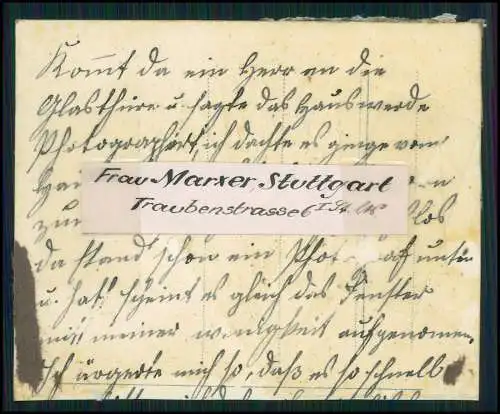 Kom̄t da ein Herr an die
Glasthüre u. sagte das Haus werde
Photographirt, ich dachte es ginge vom
Frau Marxer, Stuttgart
Traubenstrasse 6 I St.
zur los
da stand schon ein Photograf unten
u. hat scheint es gleich das Fenster
mit meiner wenigkeit aufgenomen.
Ich ärgerte mich so, daß es so schnell